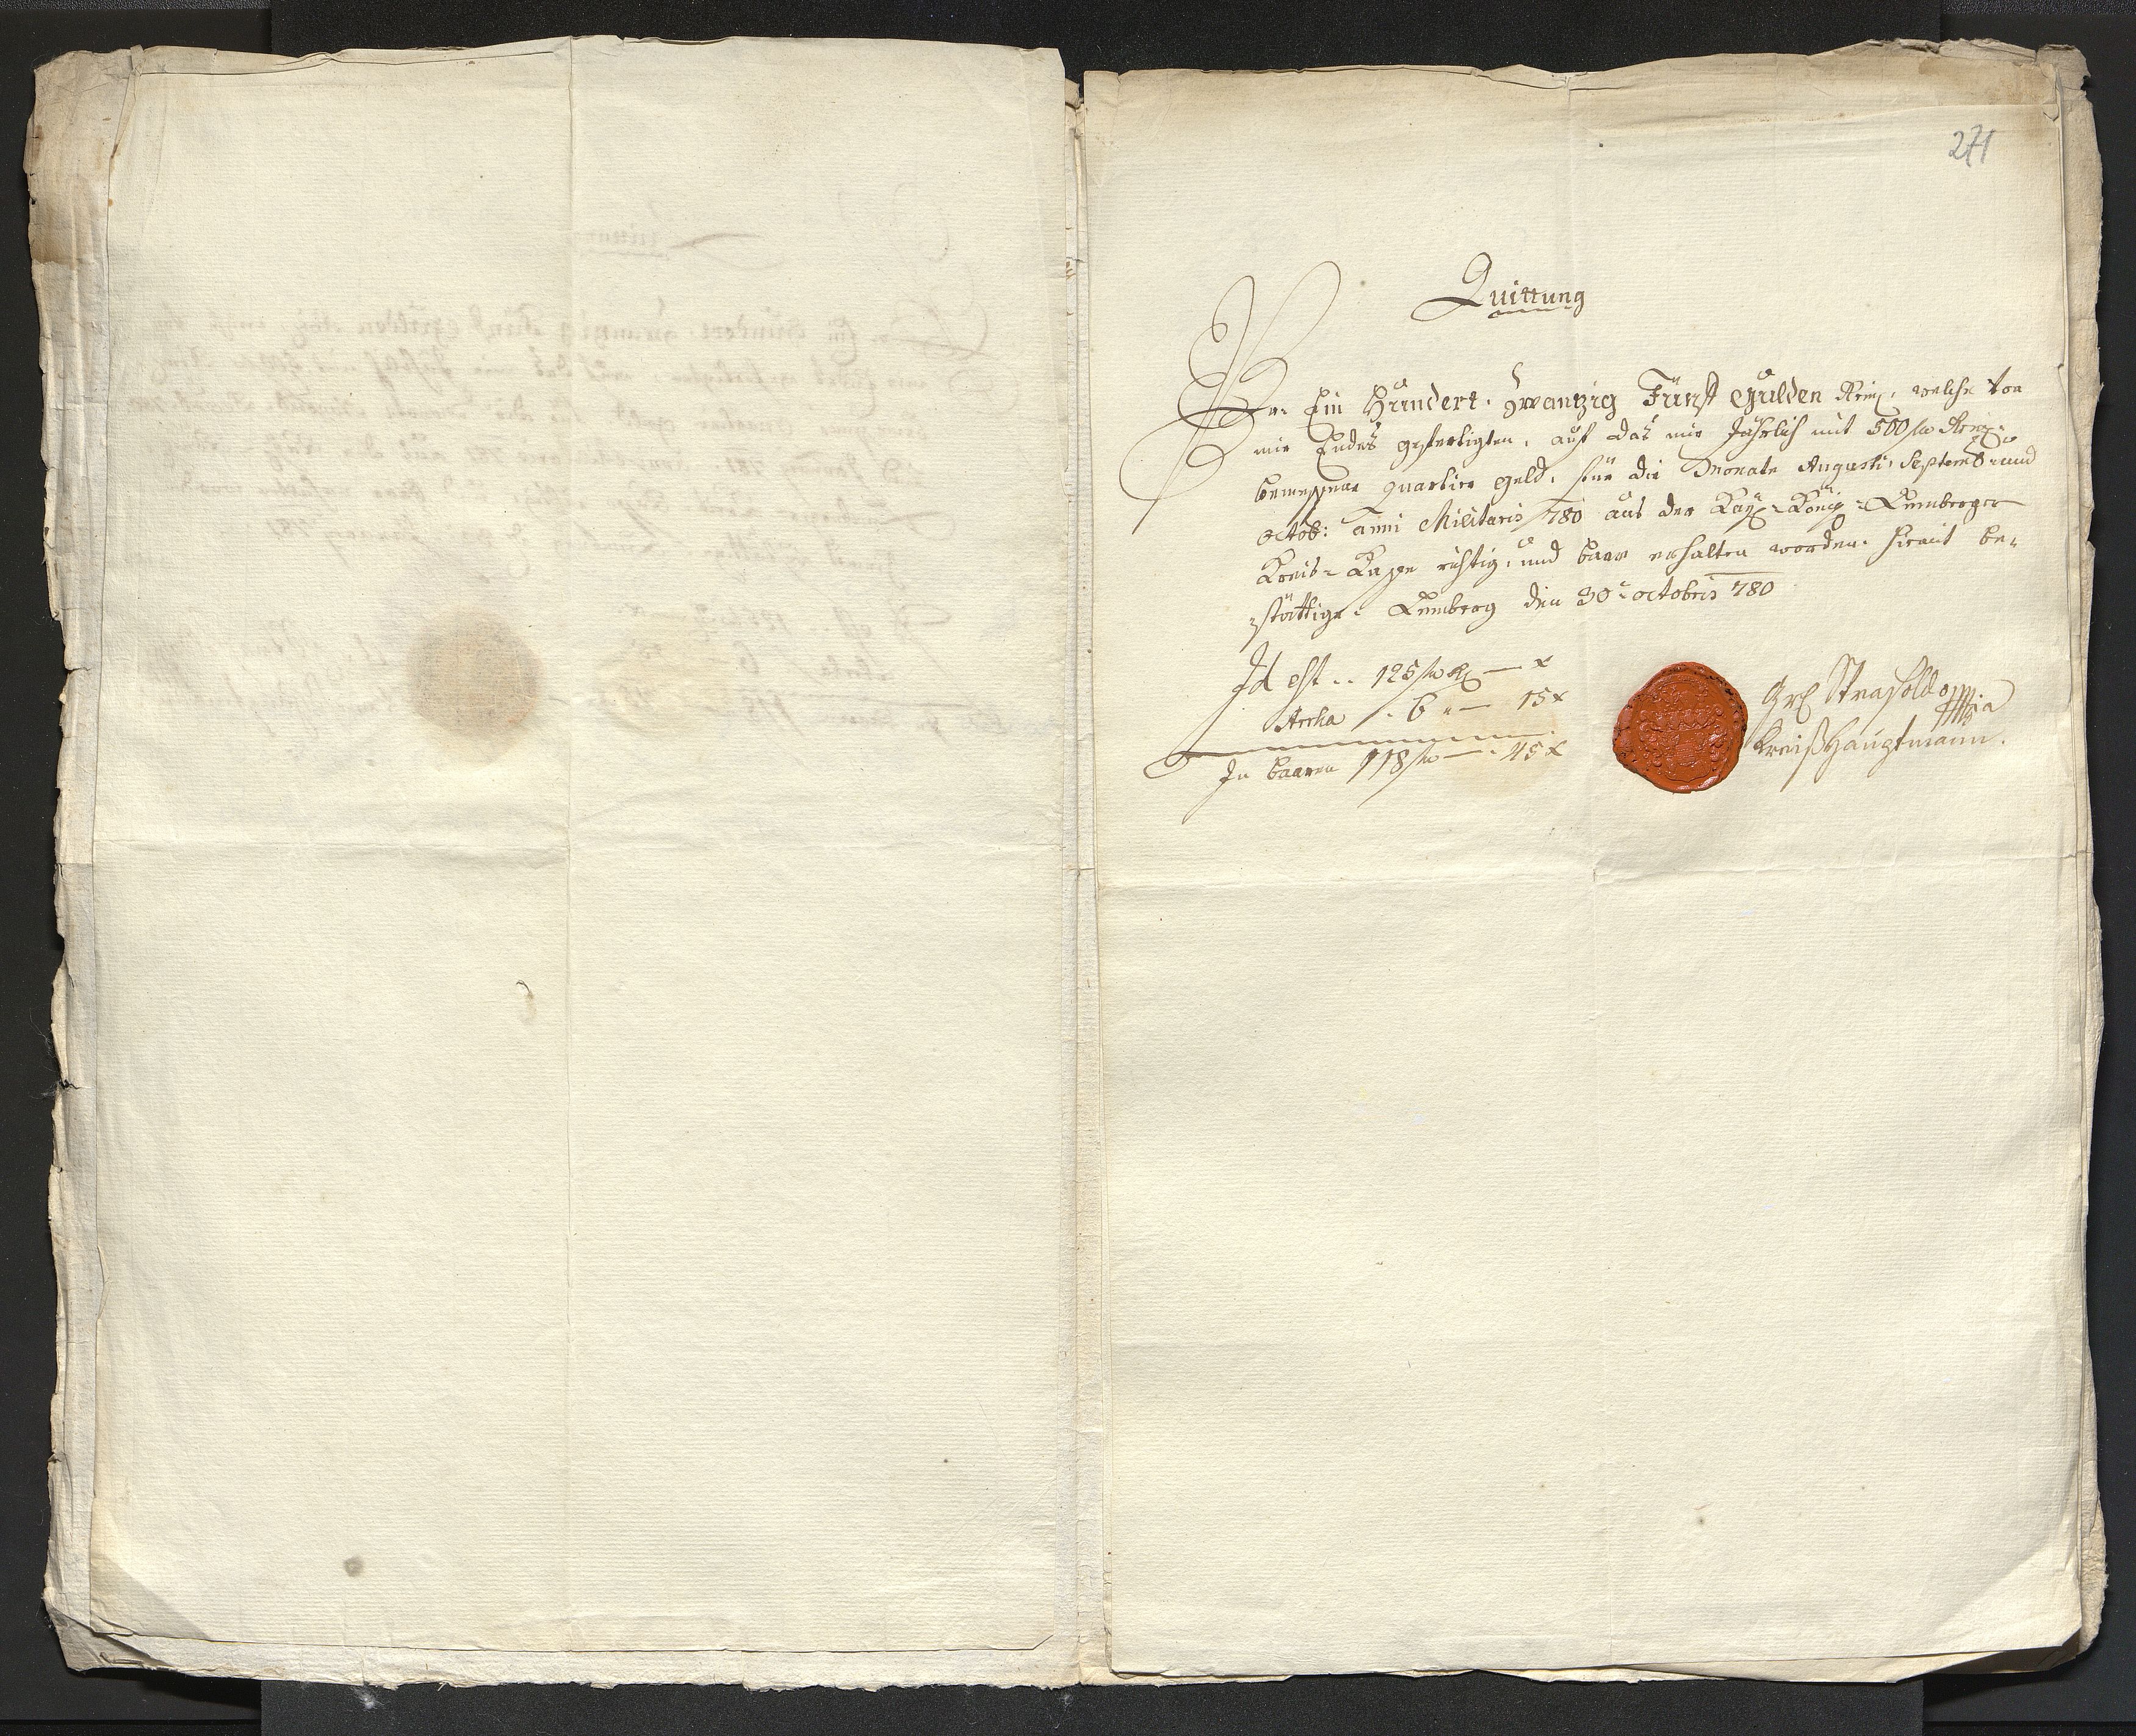 271
Quittung
Per Ein Hundert Zwanzig Fünf Gulden Rhein. welche von
mir Endes gefertigten, auf das mir Jährlich mit 500 fl Rhein:
bemessene quartier Geld, für die Monate Augusti, Septemb: und
octob: anni Militaris 780 aus der Kay: König: Lemberger
Kreis-Kasse richtig, und baar erhalten worden. hiemit be-
stättige. Lemberg den 30: octobris 780
Id est .. 125 fl — x
Arrha .. 6 „ — 15 x
In baaren 118 fl — 45 x
Grf Strasoldo
KreißHauptmann.